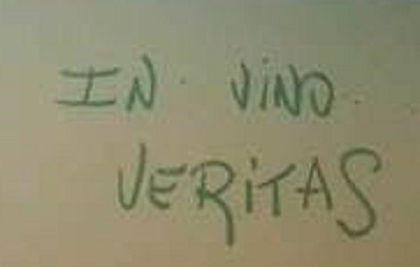 IN VINO
VERITAS